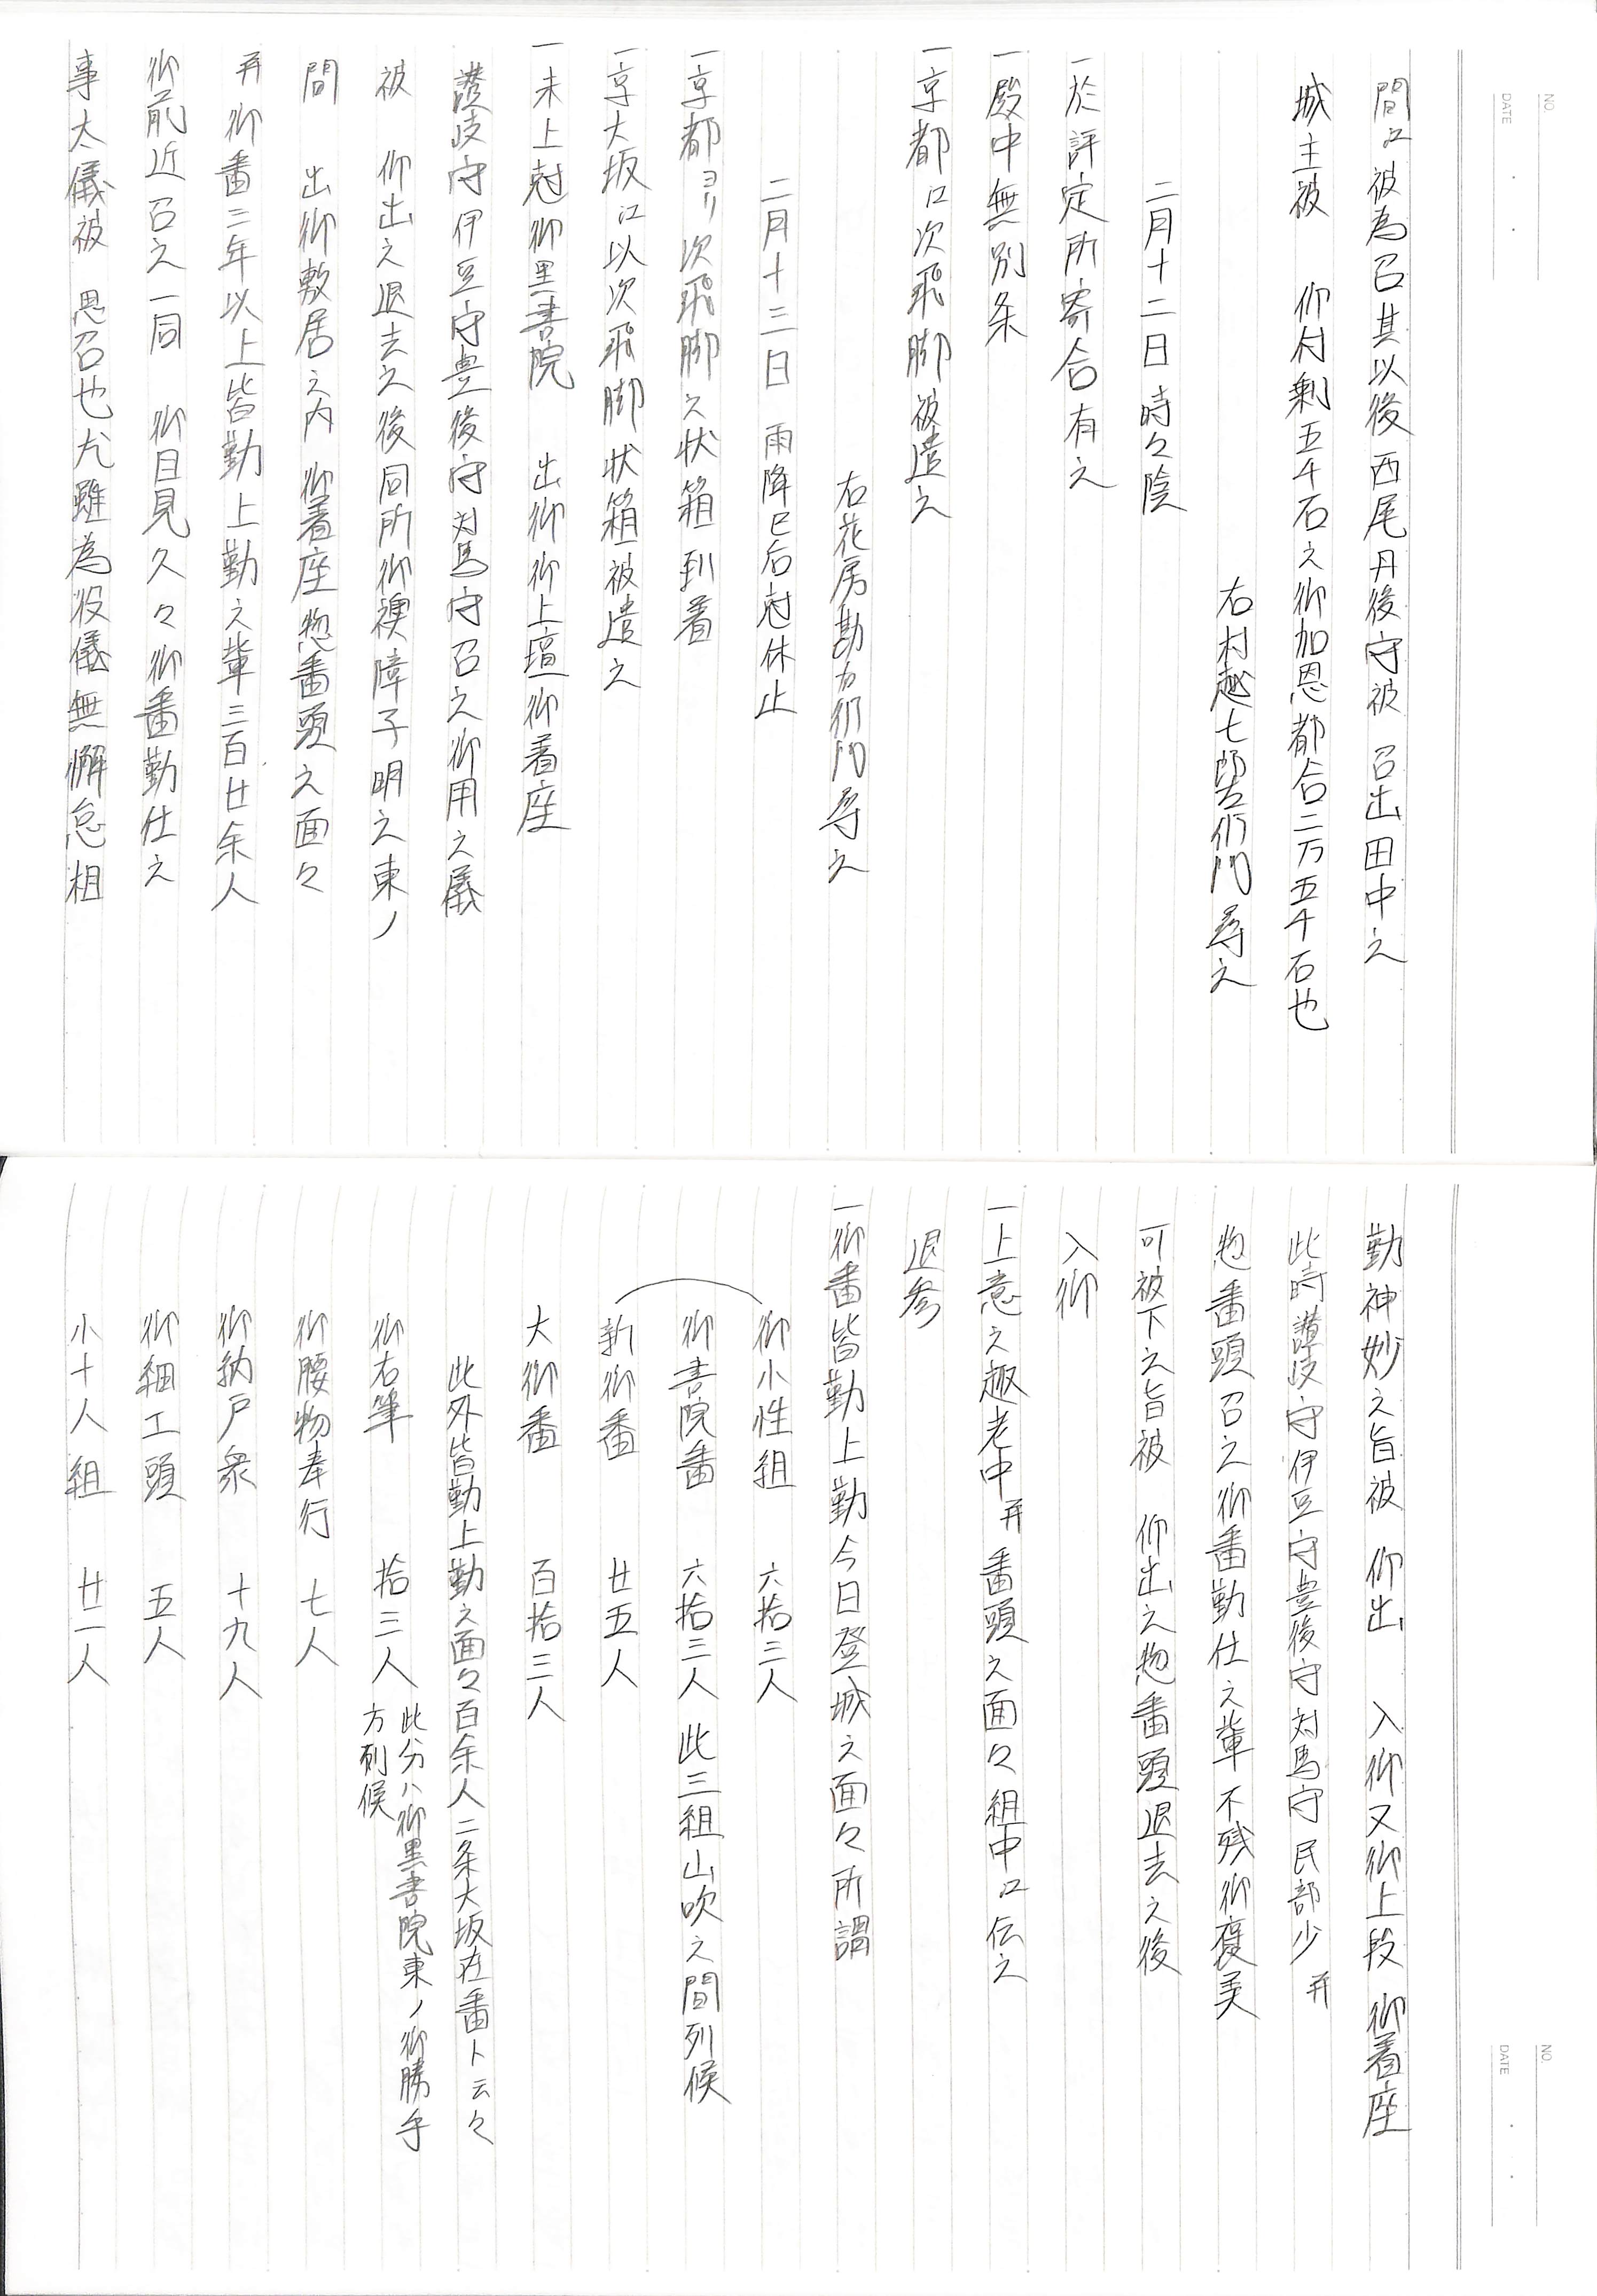 NO.
DATE
間江被為召其以後西尾丹後守被　召出田中之
城主被　仰付剰五千石之御加恩都合二万五千石也
右村越七郎左衛門尋之
二月十二日　時々陰
一於評定所寄合有之
一殿中無別条
一京都江次飛脚被遣之
右花房勘右衛門尋之
二月十三日　雨降巳后尅休止
一京都ヨリ次飛脚之状箱到着
一京大坂江以次飛脚状箱被遣之
一未上尅御黒書院　出御御上壇御着座
讃岐守伊豆守豊後守対馬守召之御用之儀
被　仰出之退去之後同所御襖障子明之東ノ
間　出御敷居之内　御着座惣番頭之面々
并御番三年以上皆勤上勤之輩三百廿余人
御前近召之一同　御目見久々御番勤仕之
事太儀被　思召也尤雖為役儀無懈怠相
NO.
DATE
勤神妙之旨被　仰出　入御又御上段　御着座
此時讃岐守伊豆守豊後守対馬守民部少并
惣番頭召之御番勤仕之輩不残御褒美
可被下之旨被　仰出之惣番頭退去之後
入御
一上意之趣老中并番頭之面々組中江伝之
退参
一御番皆勤上勤今日登城之面々所謂
御小性組　六拾三人
御書院番　六拾三人　此三組山吹之間列候
新御番　廿五人
大御番　百拾三人
此外皆勤上勤之面々百余人二条大坂在番ト云々
御右筆　拾三人　此分ハ御黒書院東ノ御勝手
方列候
御腰物奉行　七人
御納戸衆　十九人
御細工頭　五人
小十人組　廿二人